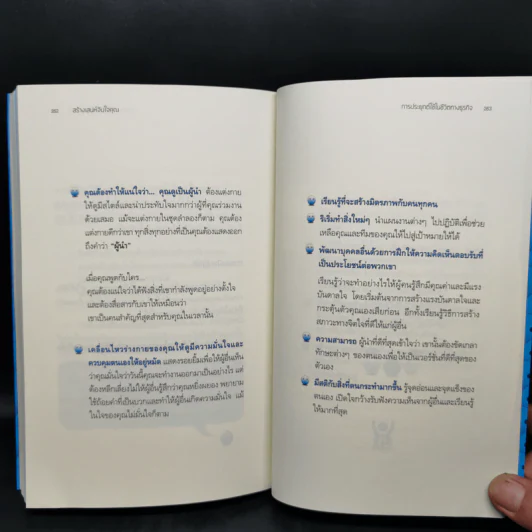 182 สร้างเสน่ห์ในใจคุณ
คุณต้องทำให้แน่ใจว่า... คุณดูเป็นผู้นำ ต้องแต่งกาย
ให้ดูมีสไตล์และน่าประทับใจมากกว่าผู้ที่คุณร่วมงาน
ด้วยเสมอ แม้จะแต่งกายในชุดลำลองก็ตาม คุณต้อง
แต่งกายดีกว่าเขา ทุกสิ่งทุกอย่างที่เป็นคุณต้องแสดงออก
ถึงคำว่า "ผู้นำ"
เมื่อคุณพูดกับใคร...
คุณต้องแน่ใจว่าได้ฟังสิ่งที่เขากำลังพูดอยู่อย่างตั้งใจ
และต้องสื่อสารกับเขาให้เหมือนว่า
เขาเป็นคนสำคัญที่สุดสำหรับคุณในเวลานั้น
เคลื่อนไหวร่างกายของคุณให้ดูมีความมั่นใจและ
ควบคุมตนเองให้อยู่หมัด แสดงรอยยิ้มเพื่อให้ผู้อื่นเห็น
ว่าคุณมั่นใจว่าวันนี้คุณจะทำงานออกมาเป็นอย่างไร แต่
ต้องหลีกเลี่ยงไม่ให้ผู้อื่นรู้สึกว่าคุณหยิ่งผยอง พยายาม
ใช้ถ้อยคำที่เป็นบวกและทำให้ผู้อื่นเกิดความมั่นใจ แม้
ในใจของคุณไม่มั่นใจก็ตาม
การประยุกต์ใช้ในชีวิตทางธุรกิจ 183
เรียนรู้ที่จะสร้างมิตรภาพกับคนทุกคน
ริเริ่มทำสิ่งใหม่ๆ นำแผนงานต่างๆ ไปปฏิบัติเพื่อช่วย
เหลือคุณและทีมของคุณให้ไปสู่เป้าหมายให้ได้
พัฒนาบุคคลอื่นด้วยการฝึกให้ความคิดเห็นตอบรับที่
เป็นประโยชน์ต่อพวกเขา
เรียนรู้ว่าจะทำอย่างไรให้ผู้คนรู้สึกมีคุณค่าและมีแรง
บันดาลใจ โดยเริ่มต้นจากการสร้างแรงบันดาลใจและ
กระตุ้นตัวคุณเองเสียก่อน อีกทั้งเรียนรู้วิธีการสร้าง
สภาวะทางจิตใจที่ดีให้แก่ผู้อื่น
ความสามารถ ผู้นำที่ดีที่สุดเข้าใจว่า เขานั้นต้องขัดเกลา
ทักษะต่างๆ ของตนเองเพื่อให้เป็นเวอร์ชั่นที่ดีที่สุดของ
ตัวเอง
มีสติกับสิ่งที่ตนกระทำมากขึ้น รู้จุดอ่อนและจุดแข็งของ
ตนเอง เปิดใจกว้างรับฟังความเห็นจากผู้อื่นและเรียนรู้
ให้มากที่สุด